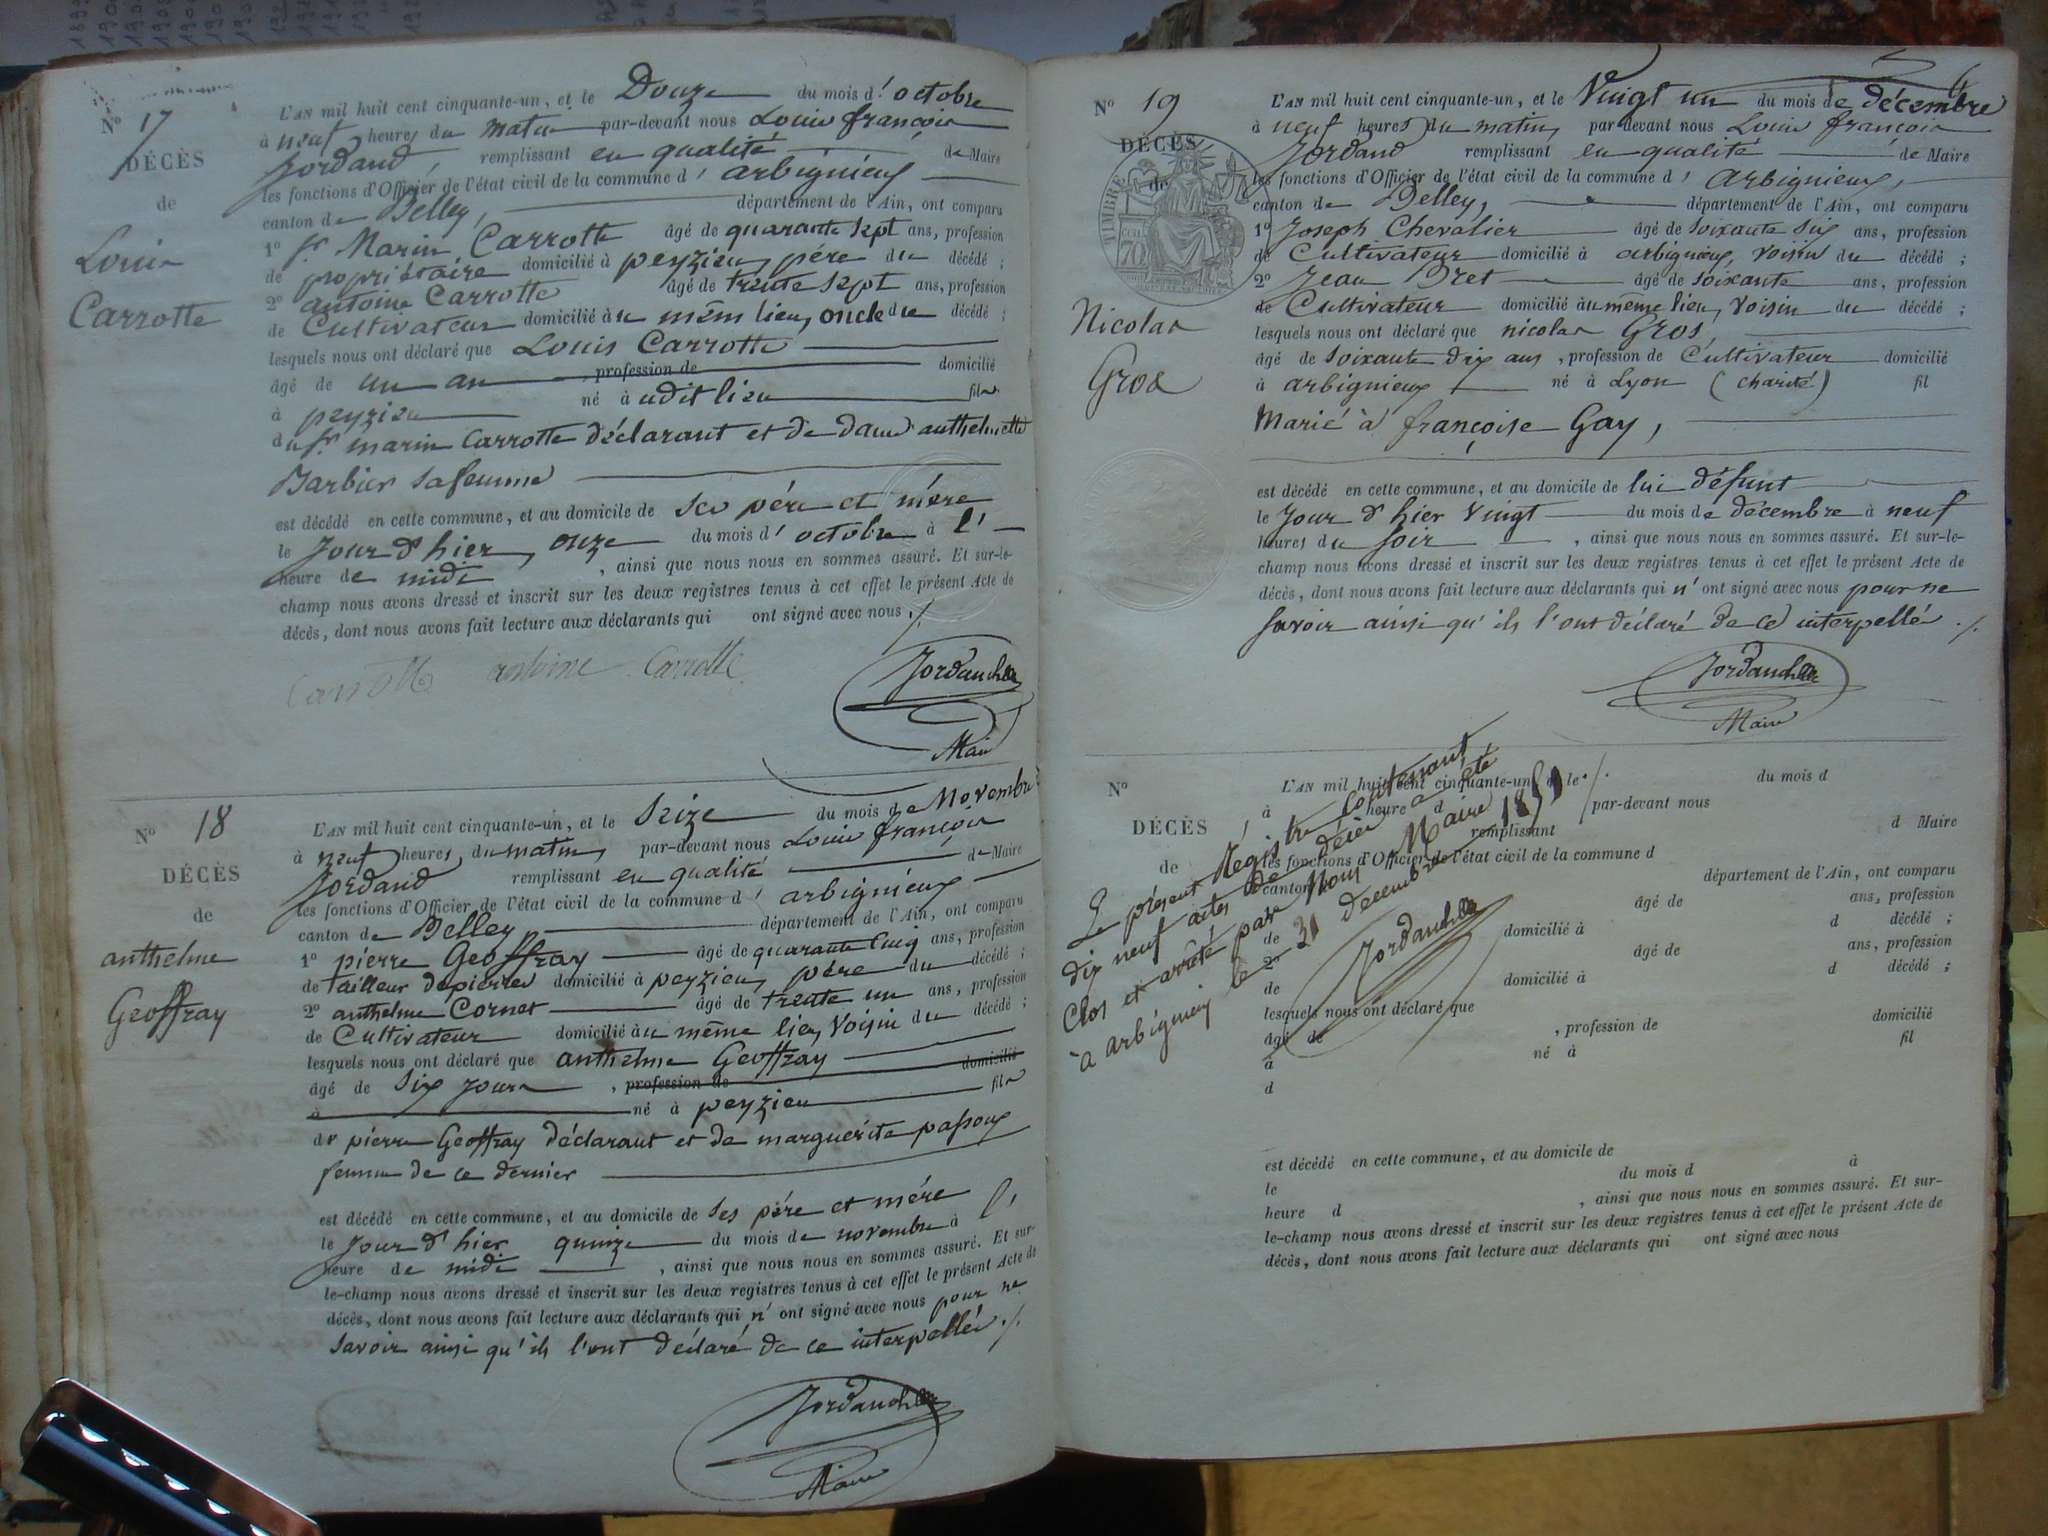 N° 17
DÉCÈS
de
Louis
Carrotte
L'AN mil huit cent cinquante-un, et le Douze du mois d'octobre
à neuf heures du matin par-devant nous Louis françois
Jordand, remplissant en qualité de Maire
les fonctions d'Officier de l'état civil de la commune d'arbignieux
canton de Belley, département de l'Ain, ont comparu
1° Sr Marin Carrotte âgé de quarante sept ans, profession
de propriétaire domicilié à peyzieu, père du décédé ;
2° antoine Carrotte âgé de trente sept ans, profession
de Cultivateur domicilié àu même lieu, oncle du décédé ;
lesquels nous ont déclaré que Louis Carrotte
âgé de un an profession de domicilié
à peyzieu né à udit lieu fils
du Sr marin Carrotte déclarant et de dame anthelmette
Barbier sa femme
est décédé en cette commune, et au domicile de ses père et mère
le jour d'hier, onze du mois d'octobre à l'
heure de midi, ainsi que nous nous en sommes assuré. Et sur-le-
champ nous avons dressé et inscrit sur les deux registres tenus à cet effet le présent Acte de
décès, dont nous avons fait lecture aux déclarants qui ont signé avec nous ./.
Carrotte antoine Carrotte
Jordand
Maire
N° 18
DÉCÈS
de
anthelme
Geoffray
L'AN mil huit cent cinquante-un, et le Seize du mois de Novembre
à neuf heures, du matin, par-devant nous Louis françois
Jordand remplissant en qualité de Maire
les fonctions d'Officier de l'état civil de la commune d'arbignieux
canton de Belley, département de l'Ain, ont comparu
1° pierre Geoffray âgé de quarante cinq ans, profession
de tailleur de pierres domicilié à peyzieu, père du décédé ;
2° anthelme Cornet âgé de trente un ans, profession
de Cultivateur domicilié àu même lieu, voisin du décédé ;
lesquels nous ont déclaré que anthelme Geoffray
âgé de six jours, profession de domicilié
à né à peyzieu fils
de pierre Geoffray déclarant et de marguerite passoux
femme de ce dernier
est décédé en cette commune, et au domicile de ses père et mère
le jour d'hier quinze du mois de novembre à l'
heure de midi, ainsi que nous nous en sommes assuré. Et sur-
le-champ nous avons dressé et inscrit sur les deux registres tenus à cet effet le présent Acte de
décès, dont nous avons fait lecture aux déclarants qui n'ont signé avec nous pour ne
savoir ainsi qu'ils l'ont déclaré de ce interpellés ./.
Jordand
Maire
6
N° 19
DÉCÈS
de
TIMBRE
70
Nicolas
Gros
L'AN mil huit cent cinquante-un, et le Vingt un du mois de décembre
à neuf heures du matin, par-devant nous Louis françois
Jordand remplissant en qualité de Maire
les fonctions d'Officier de l'état civil de la commune d'Arbignieux,
canton de Belley, département de l'Ain, ont comparu
1° Joseph Chevalier âgé de soixante six ans, profession
de Cultivateur domicilié à arbignieux, voisin du décédé ;
2° Jean Bret âgé de soixante ans, profession
de Cultivateur domicilié àu même lieu, voisin du décédé ;
lesquels nous ont déclaré que nicolas Gros,
âgé de soixante dix ans, profession de Cultivateur domicilié
à arbignieux né à Lyon (charité) fil
Marié à françoise Gay,
est décédé en cette commune, et au domicile de lui défunt
le jour d'hier vingt du mois de décembre à neuf
heures du soir, ainsi que nous nous en sommes assuré. Et sur-le-
champ nous avons dressé et inscrit sur les deux registres tenus à cet effet le présent Acte de
décès, dont nous avons fait lecture aux déclarants qui n'ont signé avec nous pour ne
savoir ainsi qu'ils l'ont déclaré de ce interpellé ./.
Jordand
Maire
N°
DÉCÈS
de
L'AN mil huit cent cinquante-un, et le ./. du mois d
à heure d par-devant nous
remplissant d Maire
les fonctions d'Officier de l'état civil de la commune d
canton d département de l'Ain, ont comparu
âgé de ans, profession
de domicilié à d décédé ;
2° âgé de ans, profession
de domicilié à d décédé ;
lesquels nous ont déclaré que
âgé de , profession de domicilié
à né à fil
d
est décédé en cette commune, et au domicile de
le du mois d à
heure d , ainsi que nous nous en sommes assuré. Et sur-
le-champ nous avons dressé et inscrit sur les deux registres tenus à cet effet le présent Acte de
décès, dont nous avons fait lecture aux déclarants qui ont signé avec nous
Le présent Registre contenant
dix neuf actes de décès a été
Clos et arrêté par Nous Maire
à arbignieux le 31 decembre 1851
Jordand